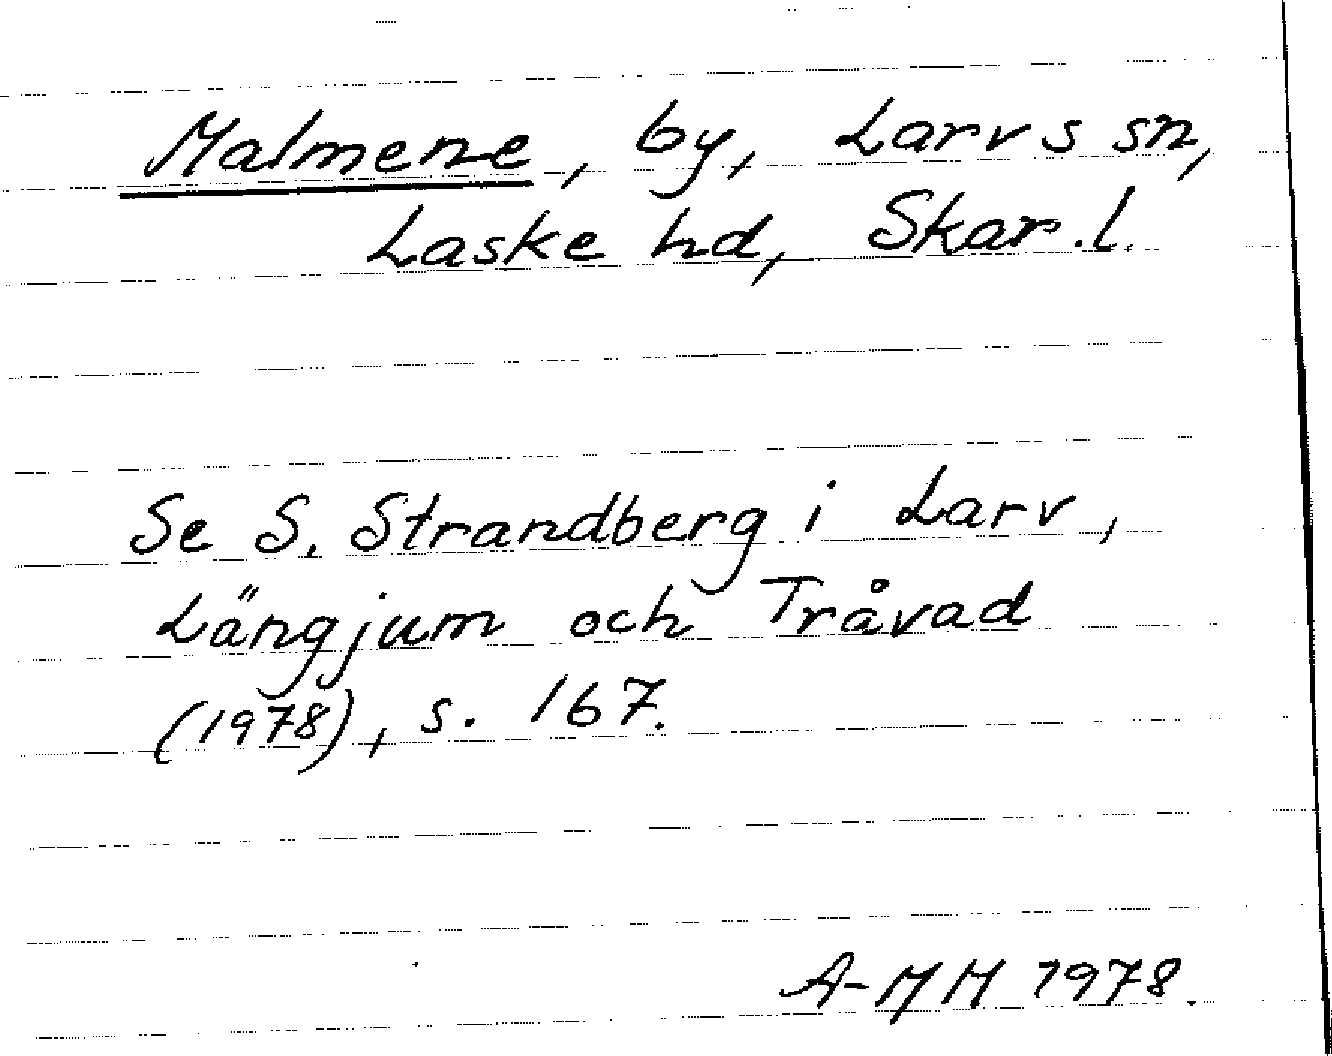 Malmene, by, Larvs sn,
Laske hd, Skar.l.
Se S. Strandberg i Larv,
Längjum och Tråvad
(1978), s. 167.
A-MH 1978.